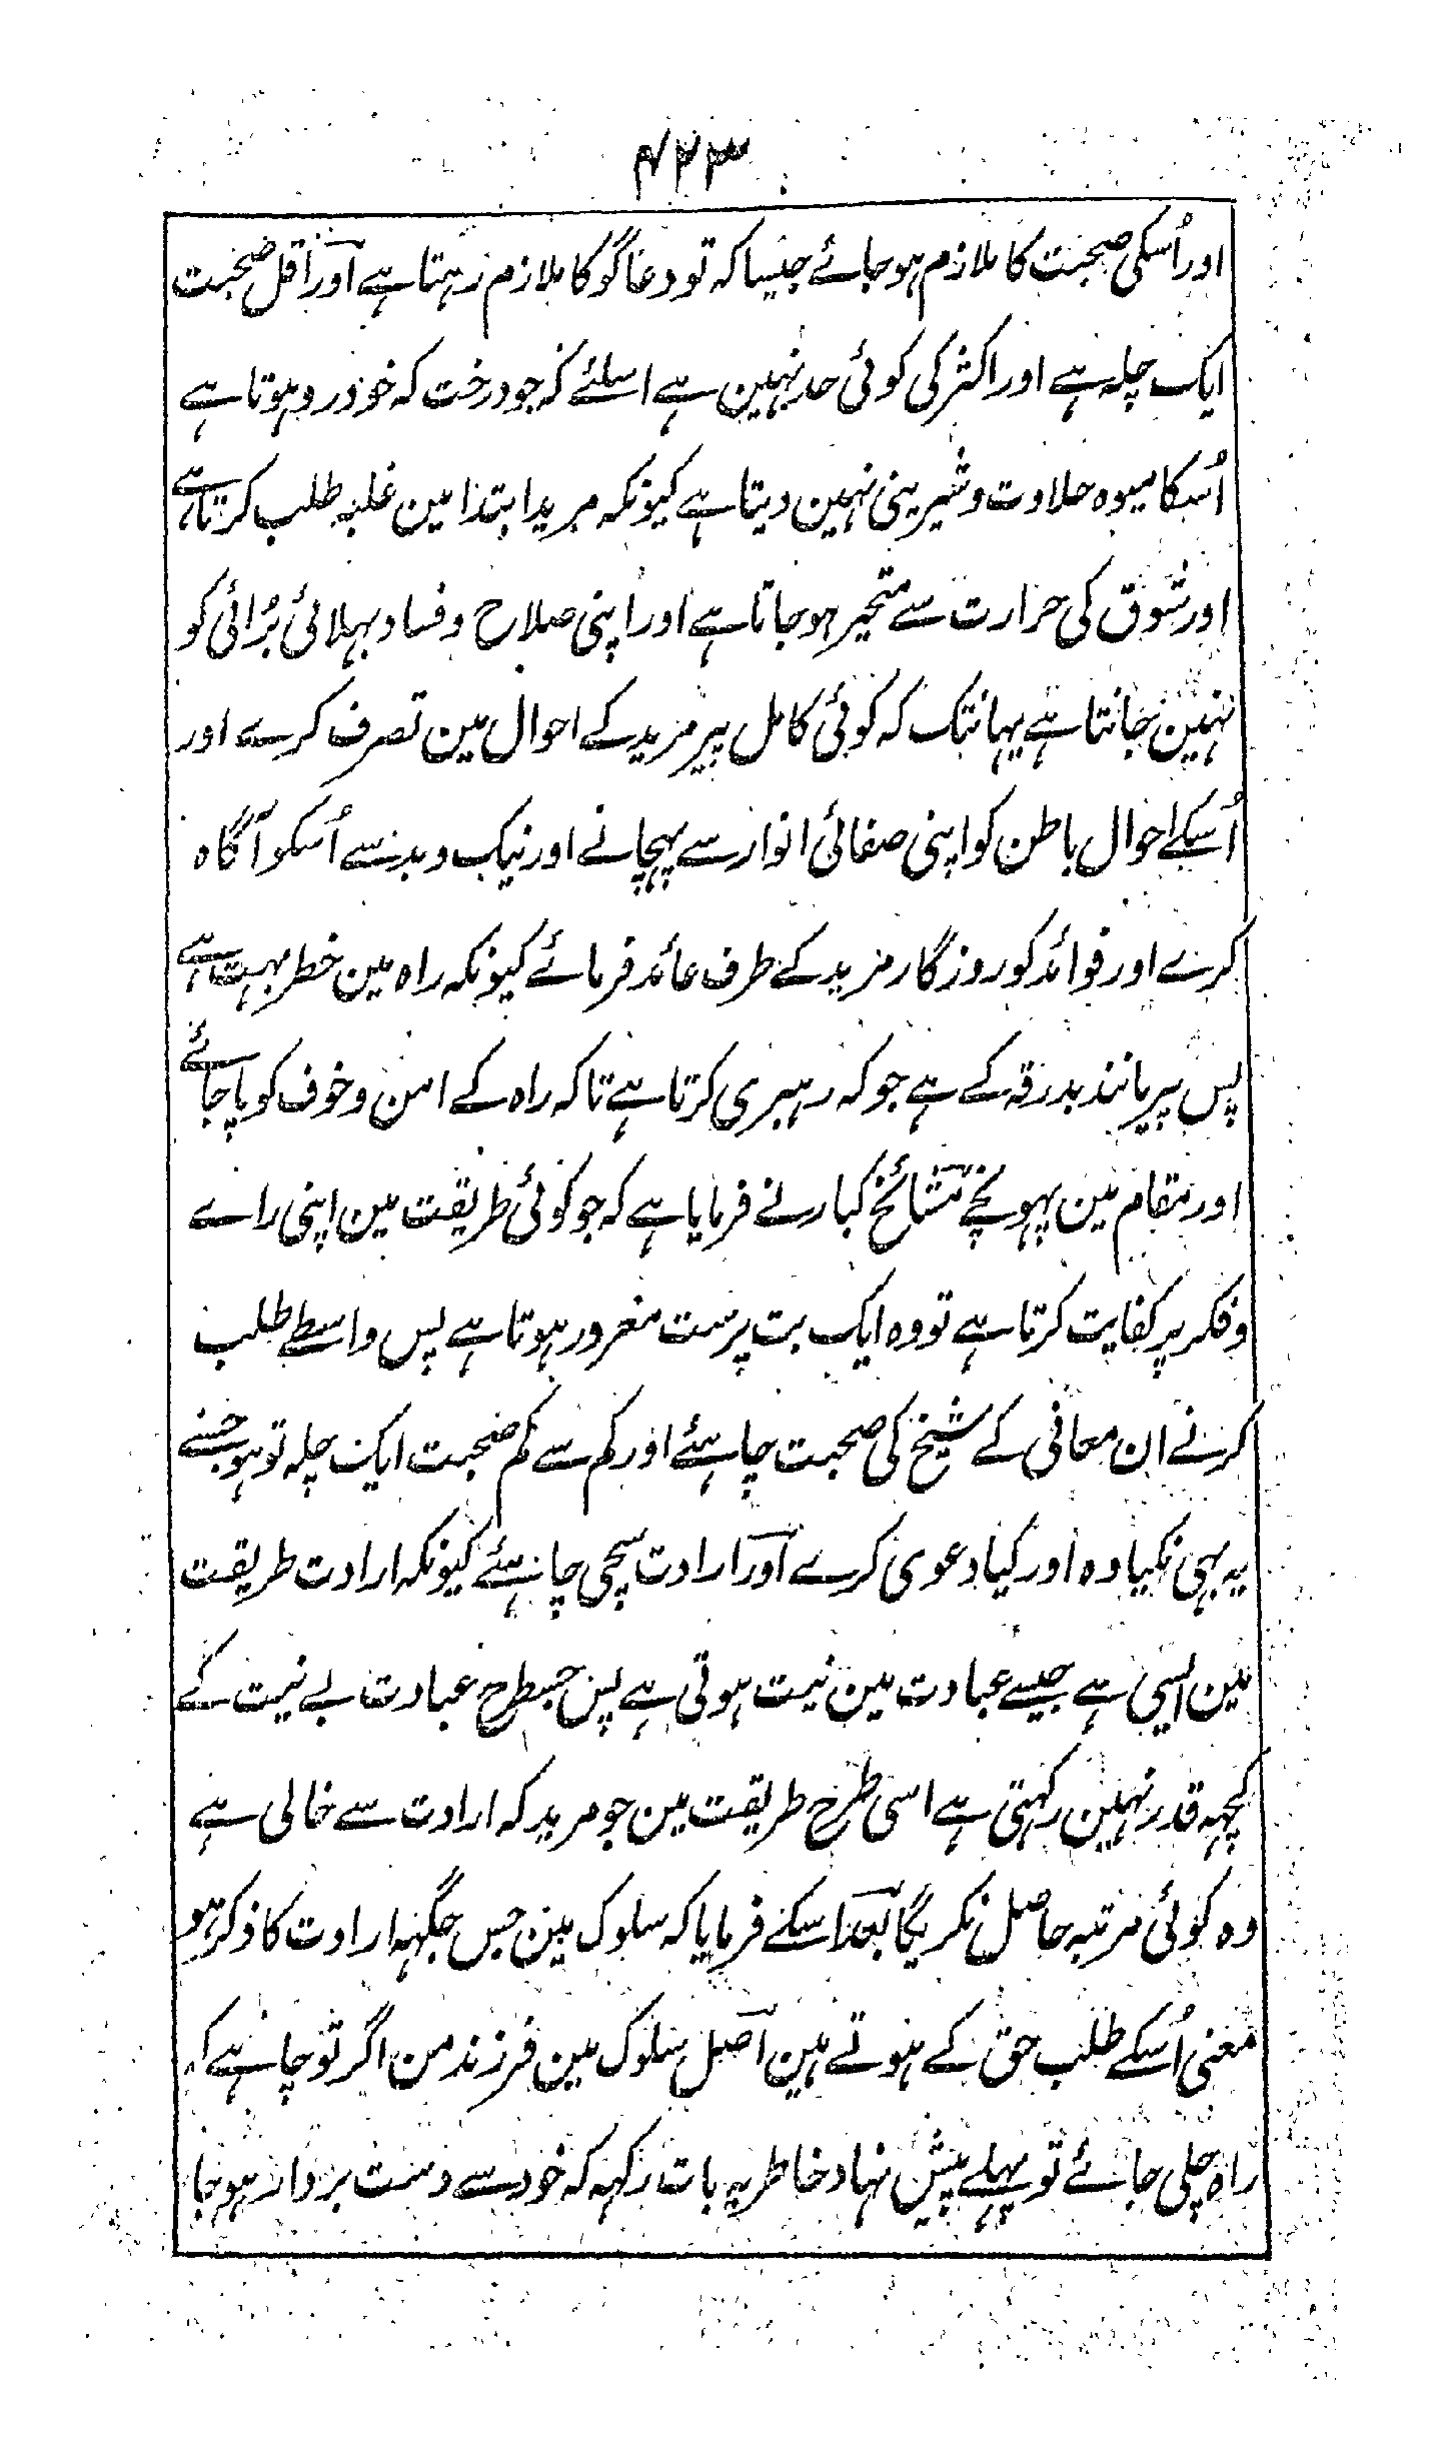 ۷۲۳
اور اُسکی صحبت کا ملازم ہو جائے جیسا کہ تو دعا گو کا ملازم رہتا ہے اور اقل صحبت
ایک چلہ ہے اور اکثر کی کوئی حد نہین ہے اسلئے کہ جو درخت کہ خودرو ہوتا ہے
اُسکا میوہ حلاوت و شیرینی نہین دیتا ہے کیونکہ مرید ابتدا مین غلبہ طلب کرتا ہے
اور شوق کی حرارت سے متحیر ہو جاتا ہے اور اپنی صلاح و فساد بہلائی بُرائی کو
نہین جانتا ہے یہانتک کہ کوئی کامل پیر مرید کے احوال مین تصرف کرے اور
اُسکے احوال باطن کو اپنی صفائی انوار سے پہچانے اور نیک و بد سے اُسکو آگاہ
کرے اور فوائد کو روزگار مرید کے طرف عائد فرمائے کیونکہ راہ مین خطر بہت ہے
پس پیر مانند بدرقہ کے ہے جو کہ رہبری کرتا ہے تاکہ راہ کے امن و خوف کو پا جائے
اور مقام مین پہونچے مشائخ کبار نے فرمایا ہے کہ جو کوئی طریقت مین اپنی راے
و فکر پر کفایت کرتا ہے تو وہ ایک بت پرست مغرور ہوتا ہے پس واسطے طلب
کرنے ان معانی کے شیخ کی صحبت چاہئے اور کم سے کم صحبت ایک چلہ تو ہو جسنے
یہ بہی نکیا وہ اور کیا دعوی کرے اور ارادت سچی چاہئے کیونکہ ارادت طریقت
مین ایسی ہے جیسے عبادت مین نیت ہوتی ہے پس جسطرح عبادت بے نیت کے
کچہہ قدر نہین رکہتی ہے اسی طرح طریقت مین جو مرید کہ ارادت سے خالی ہے
وہ کوئی مرتبہ حاصل نکریگا بعد اسکے فرمایا کہ سلوک مین جس جگہہ ارادت کا ذکر ہو
معنی اُسکے طلب حق کے ہوتے ہین اصل سلوک مین فرزند من اگر تو چاہے کہ
راہ چلی جائے تو پہلے پیش نہاد خاطر یہ بات رکہہ کہ خود سے دست بردار ہو جا